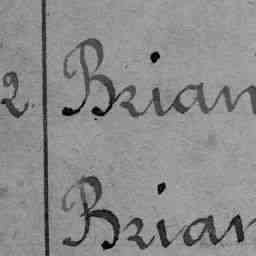 2 Brian
Brian